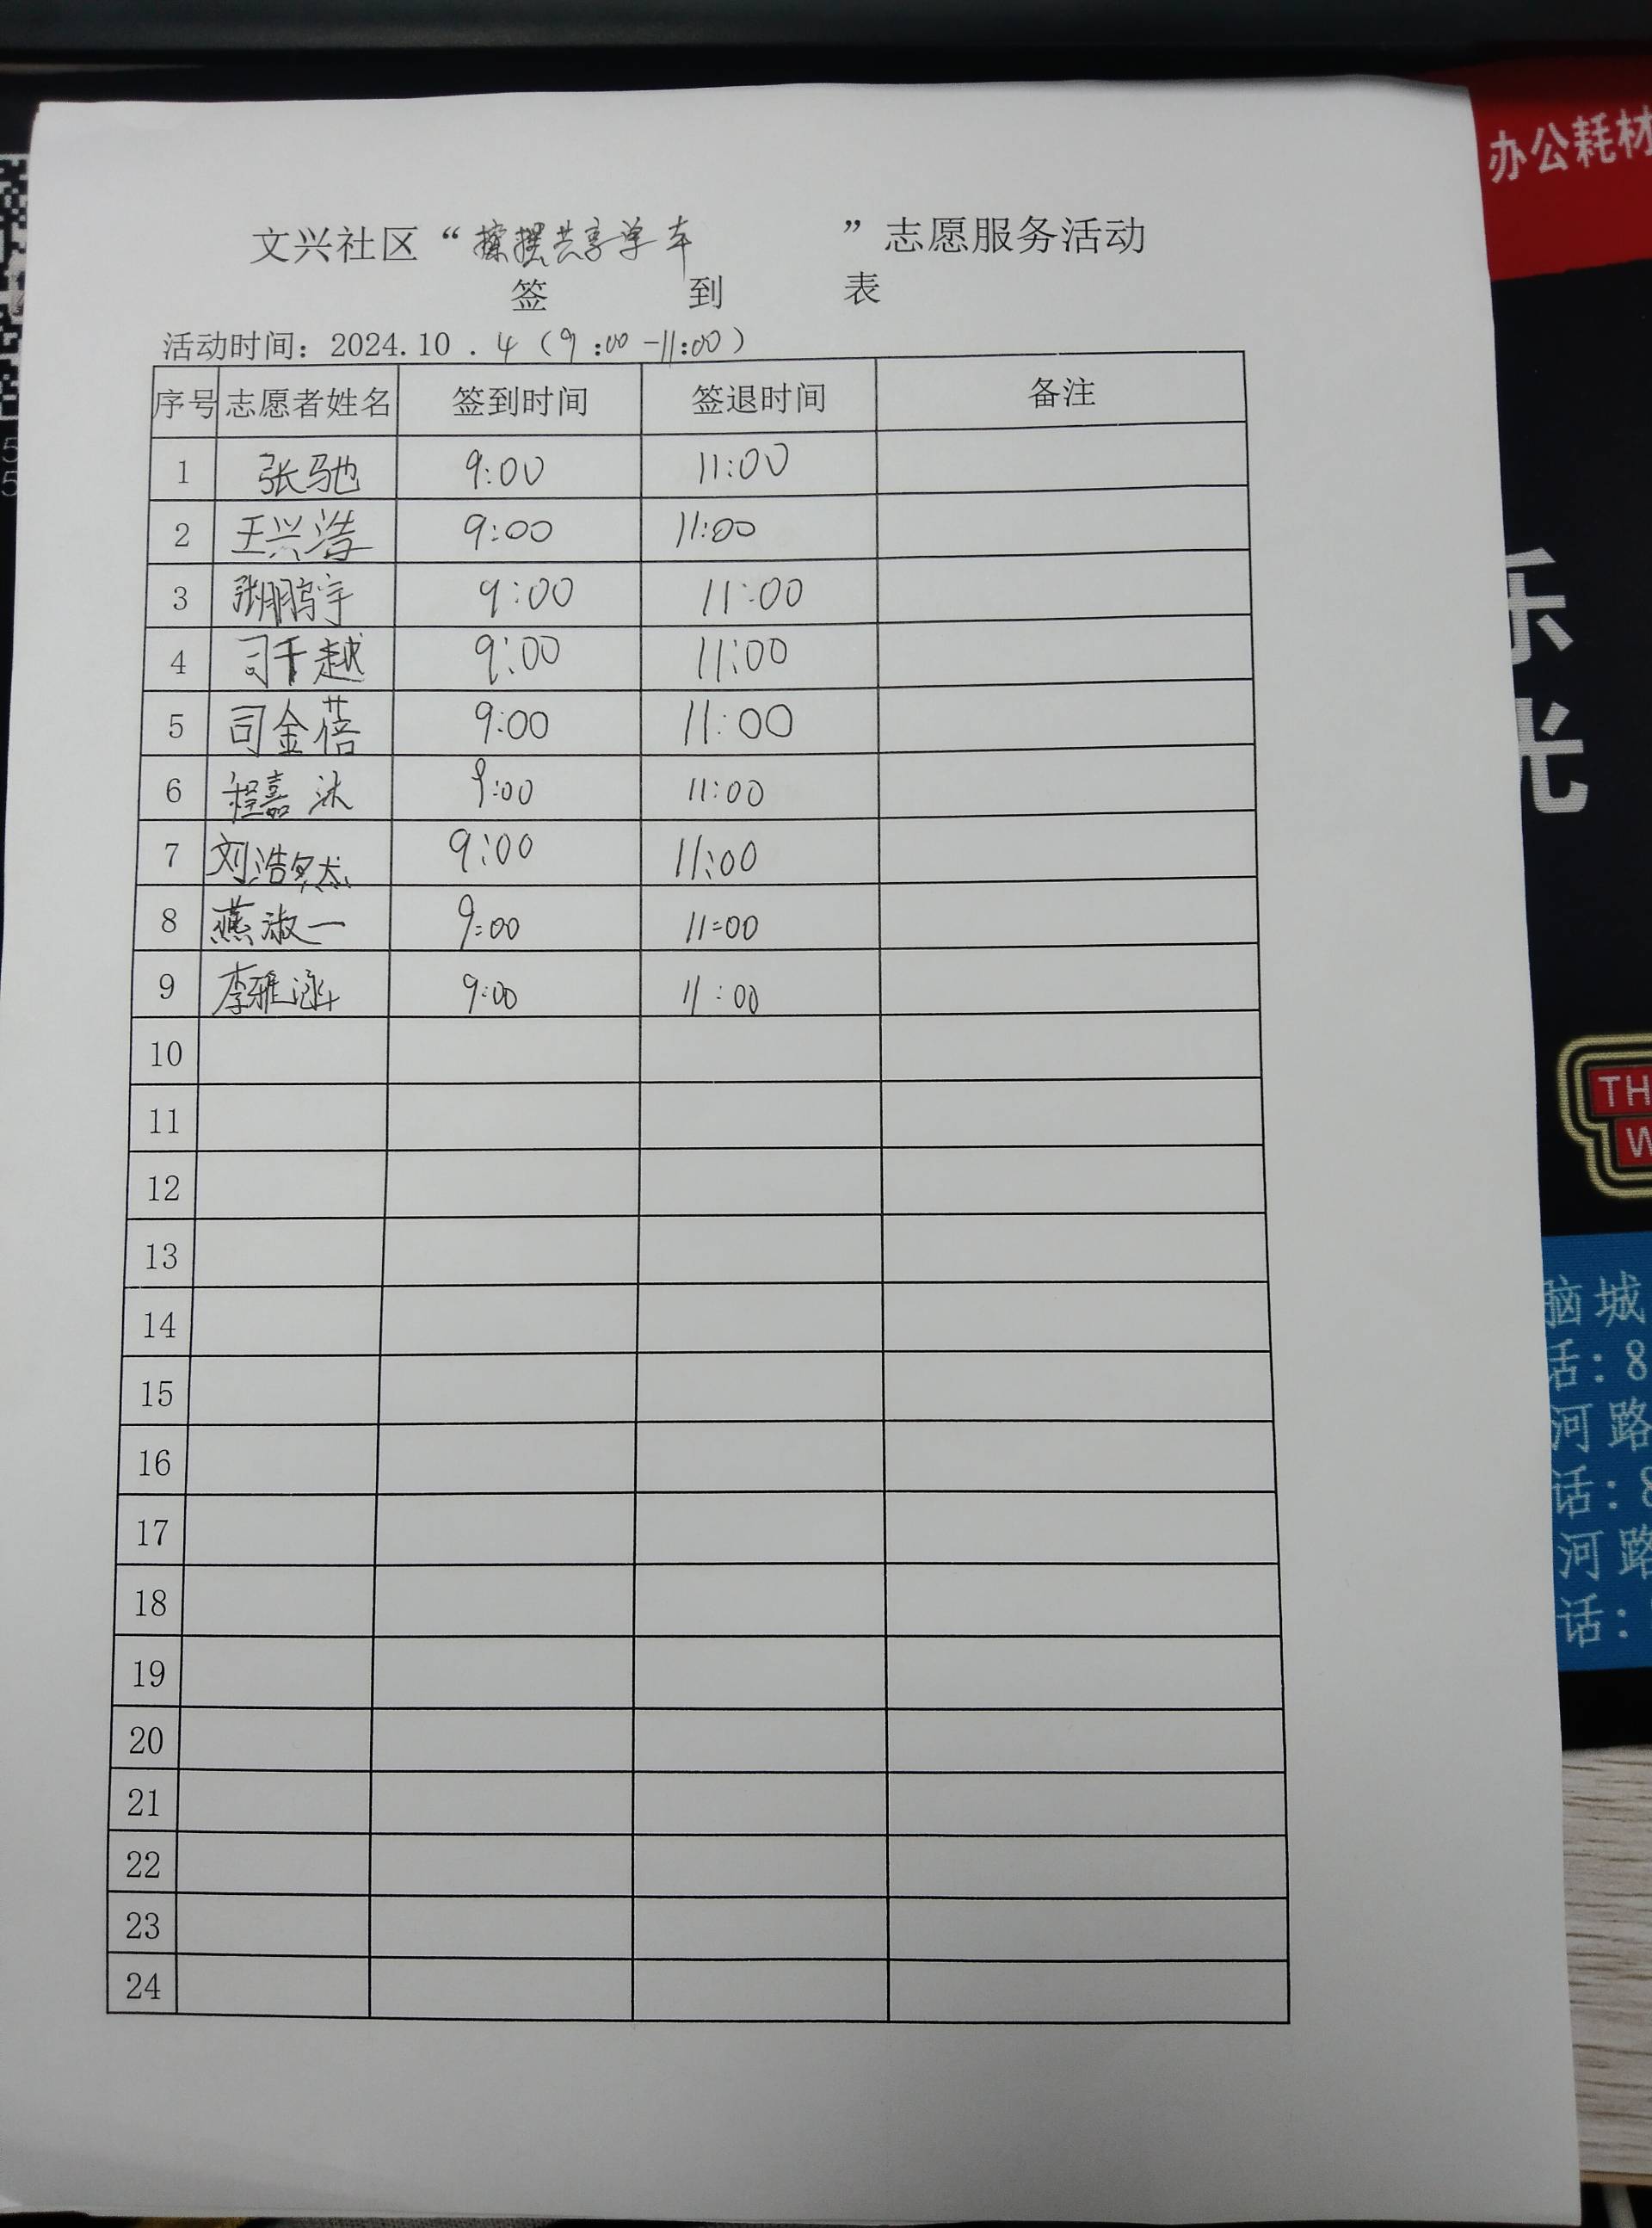 文兴社区“擦摆共享单车”志愿服务活动
签 到 表
活动时间：2024.10.4（9:00-11:00）
序号 志愿者姓名 签到时间 签退时间 备注
1 张驰 9:00 11:00
2 王兴浩 9:00 11:00
3 张鹏宇 9:00 11:00
4 司千越 9:00 11:00
5 司金蓓 9:00 11:00
6 程嘉沐 9:00 11:00
7 刘浩然 9:00 11:00
8 燕淑一 9:00 11:00
9 李雅涵 9:00 11:00
10
11
12
13
14
15
16
17
18
19
20
21
22
23
24
办公耗材
乐
光
TH
W
脑城
话:8
河路
话:8
河路
话:
5
5